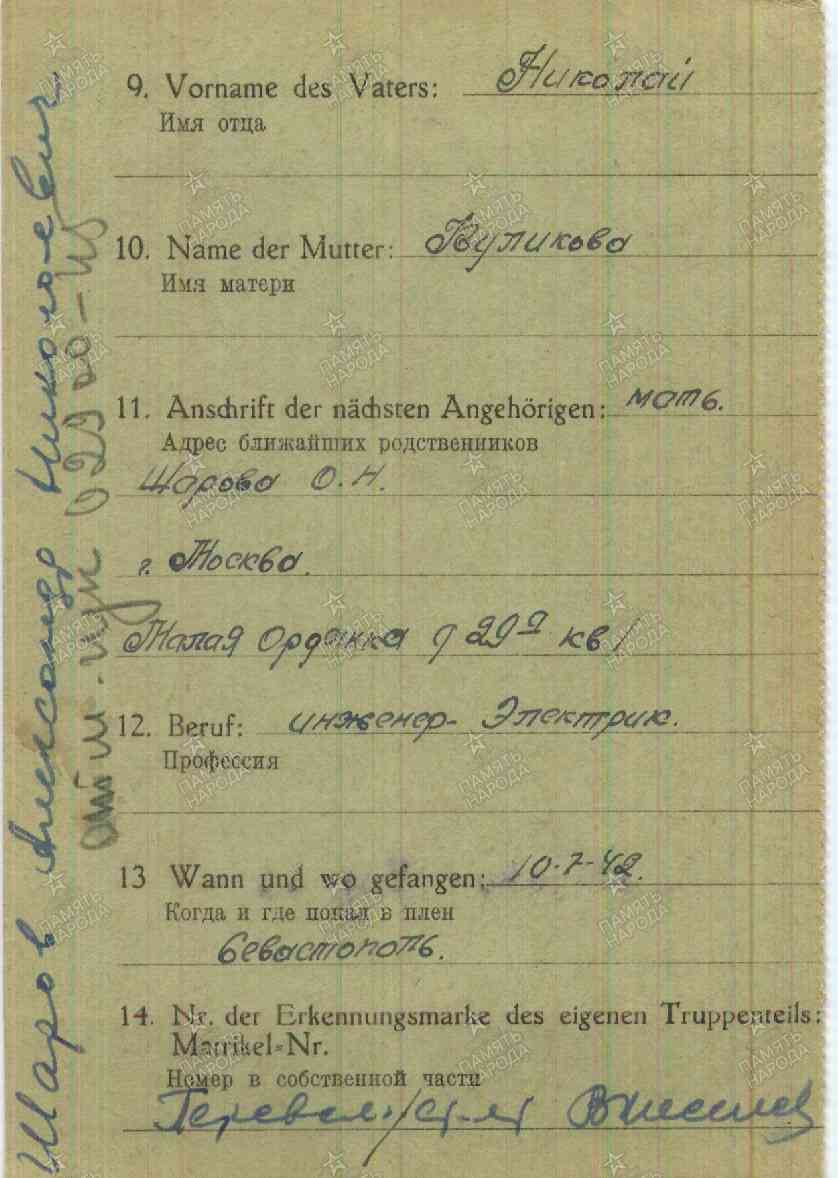 9. Vorname des Vaters: Николай
Имя отца
10. Name der Mutter: Куликова
Имя матери
11. Anschrift der nächsten Angehörigen: мать.
Адрес ближайших родственников
Шарова О.Н.
г. Москва.
Малая Ордынка 29 кв
12. Beruf: инженер-электрик.
Профессия
13 Wann und wo gefangen: 10-7-42.
Когда и где попал в плен
Севастополь.
14. Nr. der Erkennungsmarke des eigenen Truppenteils:
Matrikel=Nr.
Номер в собственной части
Перевел: /ст. л-т
Шаров Александр Николаевич
ПАМЯТЬ НАРОДА